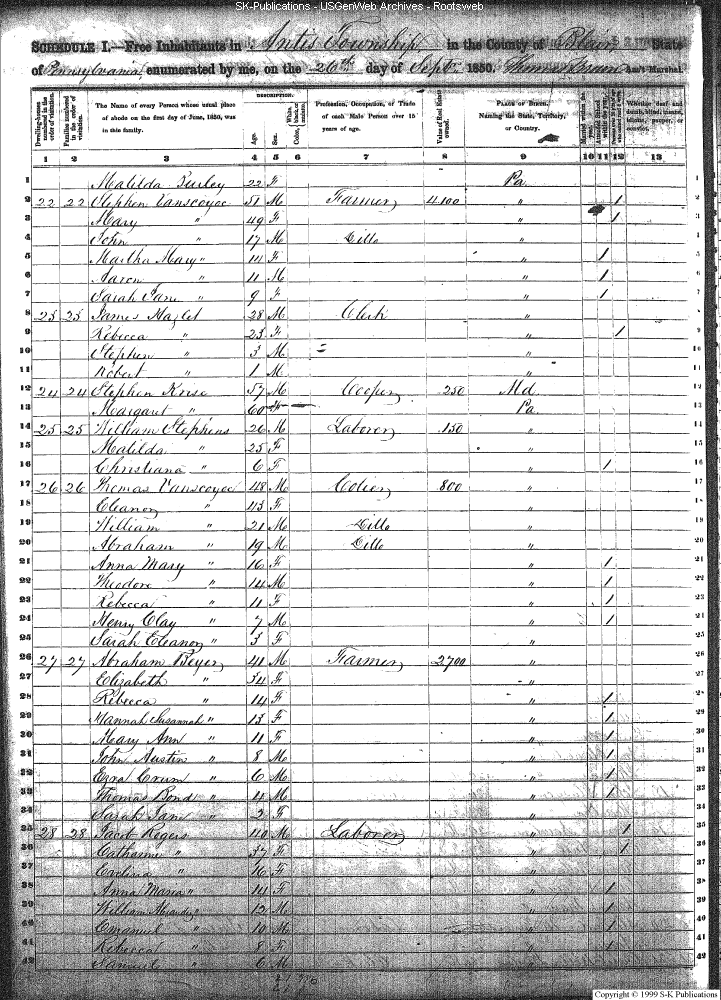 SK-Publications - USGenWeb Archives - Rootsweb
SCHEDULE I.—Free Inhabitants in Antis Township in the County of Blair State
of Pennsylvania enumerated by me, on the 26th day of Sept. 1850. Ass't Marshal.
Dwelling-houses numbered in the order of visitation.
Families numbered in the order of visitation.
The Name of every Person whose usual place of abode on the first day of June, 1850, was in this family.
DESCRIPTION.
Age.
Sex.
White, black, or mulatto.
Color,
Profession, Occupation, or Trade of each Male Person over 15 years of age.
Value of Real Estate owned.
PLACE OF BIRTH. Naming the State, Territory, or Country.
Married within the year.
Attended School within the year.
Whether deaf and dumb, blind, insane, idiotic, pauper, or convict.
1 2 3 4 5 6 7 8 9 10 11 12 13
1 Matilda 22 F Pa 1
2 22 22 Stephen Vanscoyoc 51 M Farmer 4100 " / 2
3 Mary " 49 F " / 3
4 John " 17 M Ditto " 4
5 Martha Mary " 14 F " / 5
6 Aaron " 11 M " / 6
7 Sarah Jane " 9 F " / 7
8 23 23 James Hazlet 28 M Clerk " 8
9 Rebecca " 23 F " / 9
10 Stephen " 3 M " 10
11 Robert " 1 M " 11
12 24 24 Stephen Krise 57 M Cooper 250 Md. 12
13 Margaret " 60 F Pa 13
14 25 25 William Stephens 26 M Laborer 150 " 14
15 Matilda " 25 F " 15
16 Christiana " 6 F " / 16
17 26 26 Thomas Vanscoyoc 48 M 800 " 17
18 Eleanor " 43 F " 18
19 William " 21 M Ditto " 19
20 Abraham " 19 M Ditto " 20
21 Anna Mary " 16 F " / 21
22 Theodore " 14 M " / 22
23 Rebecca " 11 F " / 23
24 Henry Clay " 7 M " / 24
25 Sarah Eleanor " 3 F " 25
26 27 27 Abraham Beyer 41 M Farmer 2700 " 26
27 Elizabeth " 34 F " 27
28 Rebecca " 14 F " / 28
29 Hannah Susannah " 13 F " / 29
30 Mary Ann " 11 F " / 30
31 John Austin " 8 M " / 31
32 Ezra Crum " 6 M " / 32
33 Thomas Bond " 4 M " / 33
34 Sarah Jane " 2 F " 34
35 28 28 Jacob 40 M Laborer " / 35
36 Catharine " 37 F " / 36
37 " 16 F " 37
38 Anna Maria " 14 F " / 38
39 William " 12 M " / 39
40 Emanuel " 10 M " / 40
41 Rebecca " 8 F " / 41
42 Samuel " 6 M " / 42
Copyright © 1999 S-K Publications